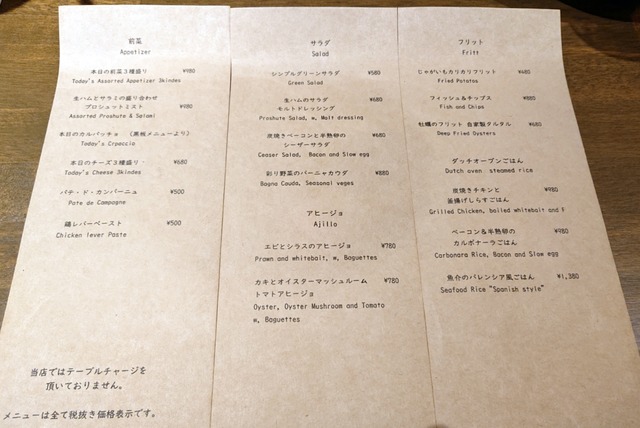 前菜
Appetizer
本日の前菜３種盛り ¥980
Today's Assorted Appetizer 3kindes
生ハムとサラミの盛り合わせ
プロシェットミスト ¥980
Assorted Proshute & Salami
本日のカルパッチョ （黒板メニューより）
Today's Crpaccio
本日のチーズ３種盛り ¥680
Today's Cheese 3kindes
パテ・ド・カンパーニュ ¥500
Pate de Campagne
鶏レバーペースト ¥500
Chicken lever Paste
当店ではテーブルチャージを
頂いておりません。
メニューは全て税抜き価格表示です。
サラダ
Salad
シンプルグリーンサラダ ¥580
Green Salad
生ハムのサラダ ¥680
モルトドレッシング
Proshute Salad, w. Malt dressing
炭焼きベーコンと半熟卵の ¥680
シーザーサラダ
Ceaser Salad, Bacon and Slow egg
彩り野菜のバーニャカウダ ¥880
Bagna Cauda, Seasonal veges
アヒージョ
Ajillo
エビとシラスのアヒージョ ¥780
Prawn and whitebait, w. Baguettes
カキとオイスターマッシュルーム ¥780
トマトアヒージョ
Oyster, Oyster Mushroom and Tomato
w. Baguettes
フリット
Fritt
じゃがいもカリカリフリット ¥480
Fried Potatos
フィッシュ＆チップス ¥880
Fish and Chips
牡蠣のフリット 自家製タルタル ¥680
Deep Fried Oysters
ダッチオーブンごはん
Dutch oven steamed rice
炭焼きチキンと ¥980
釜揚げしらすごはん
Grilled Chicken, boiled whitebait and F
ベーコン＆半熟卵の ¥980
カルボナーラごはん
Carbonara Rice, Bacon and Slow egg
魚介のバレンシア風ごはん ¥1,380
Seafood Rice "Spanish style"